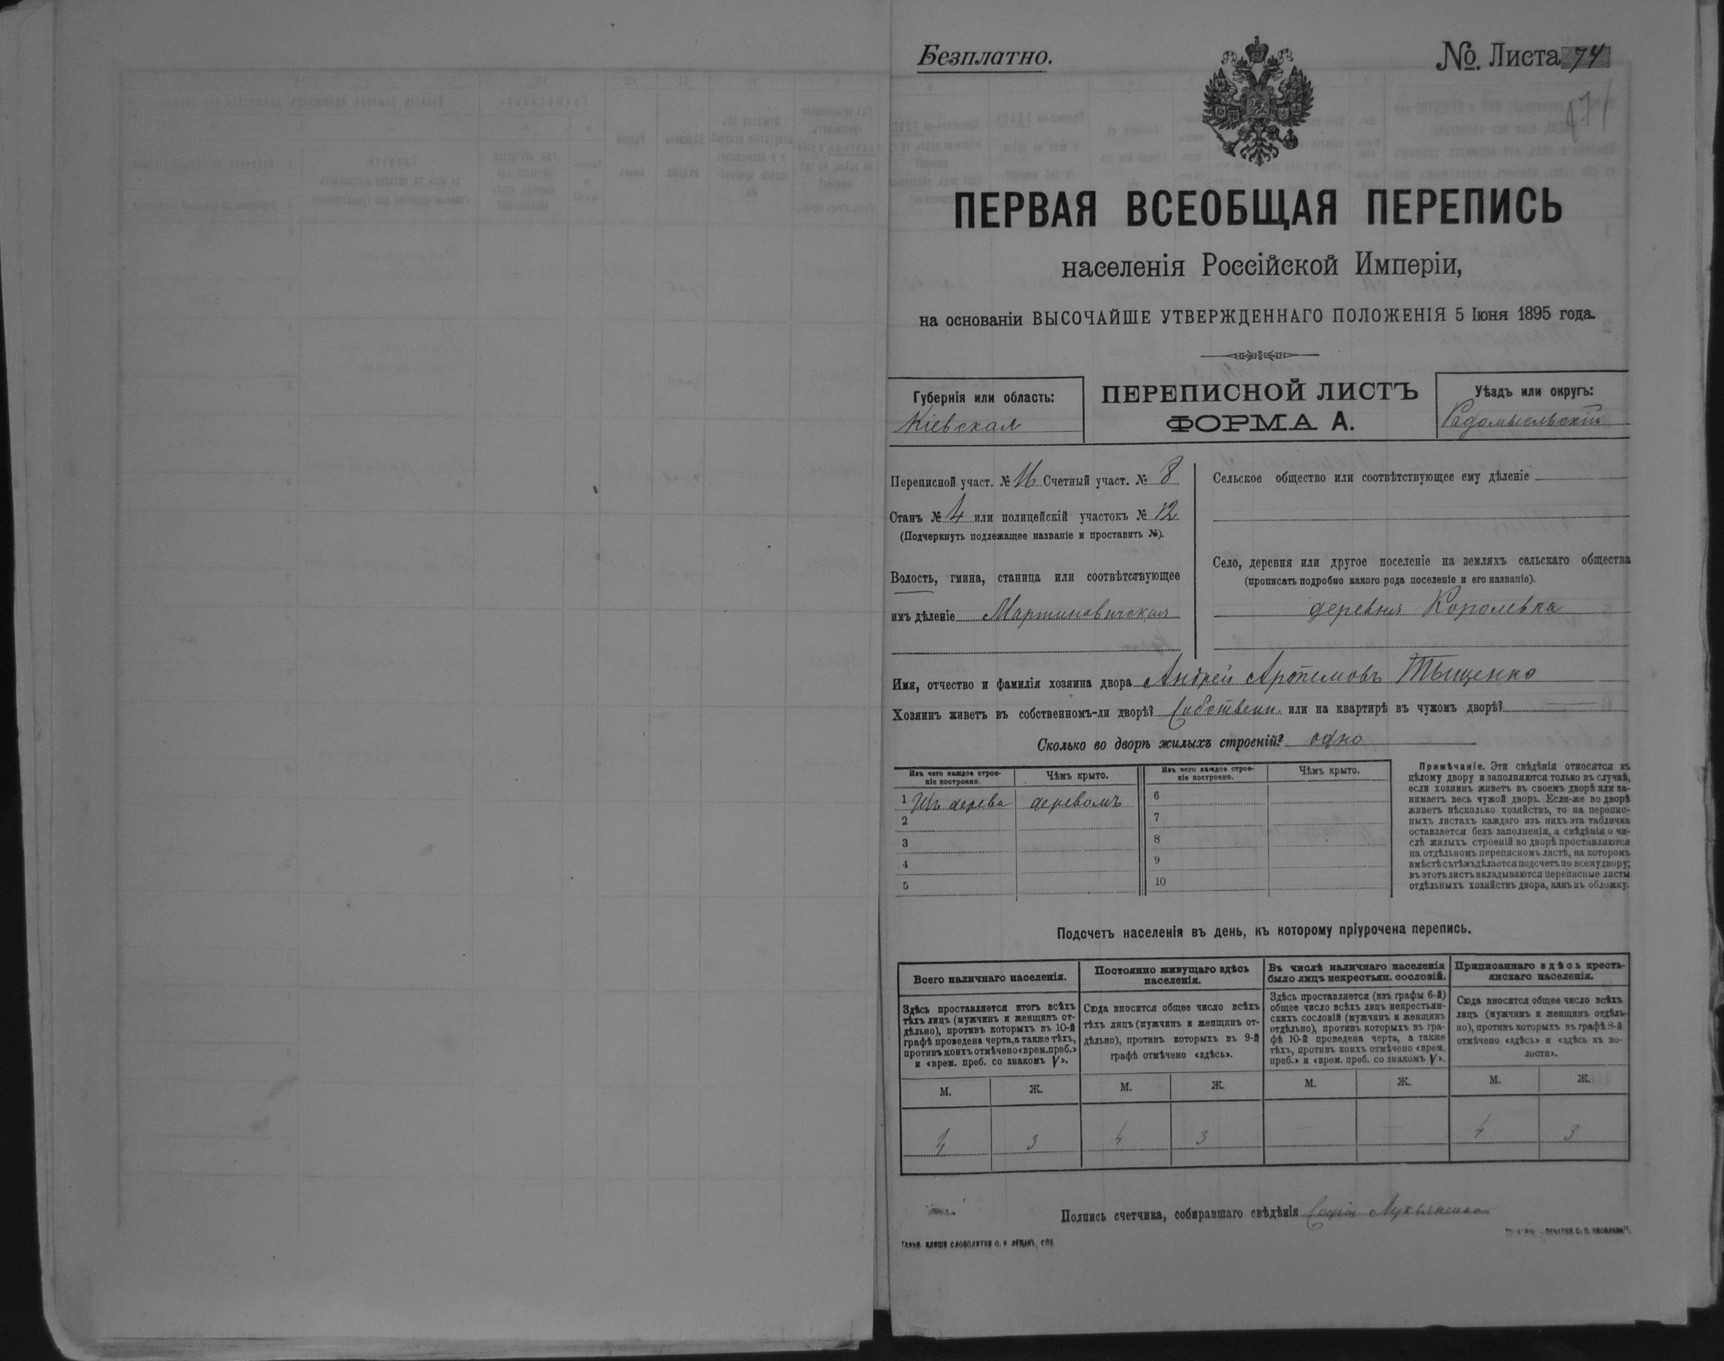 Безплатно.
№ Листа 74
ПЕРВАЯ ВСЕОБЩАЯ ПЕРЕПИСЬ
населенія Россійской Имперіи,
на основаніи ВЫСОЧАЙШЕ УТВЕРЖДЕННАГО ПОЛОЖЕНІЯ 5 Іюня 1895 года.
Губернія или область:
Кіевская
ПЕРЕПИСНОЙ ЛИСТЪ
ФОРМА А.
Уѣздъ или округъ:
Радомысльскій
Переписной участ. № 16 Счетный участ. № 8
Станъ № 4 или полицейскій участокъ № 12
(Подчеркнуть подлежащее названіе и проставить №).
Волость, гмина, станица или соотвѣтствующее
имъ дѣленіе Мартиновичская
Сельское общество или соотвѣтствующее ему дѣленіе
Село, деревня или другое поселеніе на земляхъ сельскаго общества
(прописать подробно какого рода поселеніе и его названіе).
деревня Королевка
Имя, отчество и фамилія хозяина двора Андрей Артемовъ Тыщенко
Хозяинъ живетъ въ собственномъ-ли дворѣ? Собствен. или на квартирѣ въ чужомъ дворѣ?
Сколько во дворѣ жилыхъ строеній? одно
Изъ чего каждое строе-
ніе построено.
Чѣмъ крыто.
1 Изъ дерева деревомъ
2
3
4
5
Изъ чего каждое строе-
ніе построено.
Чѣмъ крыто.
6
7
8
9
10
Примѣчаніе. Эти свѣдѣнія относятся къ
цѣлому двору и заполняются только въ случаѣ,
если хозяинъ живетъ въ своемъ дворѣ или за-
нимаетъ весь чужой дворъ. Если-же во дворѣ
живетъ нѣсколько хозяйствъ, то на перепис-
ныхъ листахъ каждаго изъ нихъ эта табличка
оставляется безъ заполненія, а свѣдѣнія о чи-
слѣ жилыхъ строеній во дворѣ проставляются
на отдѣльномъ переписномъ листѣ, на которомъ
вмѣстѣ съ тѣмъ дѣлается подсчетъ по всему двору;
въ этотъ листъ вкладываются переписные листы
отдѣльныхъ хозяйствъ двора, какъ въ обложку.
Подсчетъ населенія въ день, къ которому пріурочена перепись.
Всего наличнаго населенія.
Здѣсь проставляется итогъ всѣхъ
тѣхъ лицъ (мужчинъ и женщинъ от-
дѣльно), противъ которыхъ въ 10-й
графѣ проведена черта, а также тѣхъ,
противъ коихъ отмѣчено «врем. преб.»
и «врем. преб. со знакомъ V».
М. Ж.
4 3
Постоянно живущаго здѣсь
населенія.
Сюда вносится общее число всѣхъ
тѣхъ лицъ (мужчинъ и женщинъ от-
дѣльно), противъ которыхъ въ 9-й
графѣ отмѣчено «здѣсь».
М. Ж.
4 3
Въ числѣ наличнаго населенія
было лицъ некрестьян. сословій.
Здѣсь проставляется (изъ графы 6-й)
общее число всѣхъ лицъ некрестьян-
скихъ сословій (мужчинъ и женщинъ
отдѣльно), противъ которыхъ въ гра-
фѣ 10-й проведена черта, а также
тѣхъ, противъ коихъ отмѣчено «врем.
преб.» и «врем. преб. со знакомъ V».
М. Ж.
Приписаннаго здѣсь кресть-
янскаго населенія.
Сюда вносится общее число всѣхъ
лицъ (мужчинъ и женщинъ отдѣль-
но), противъ которыхъ въ графѣ 8-й
отмѣчено «здѣсь» и «здѣсь къ во-
лости».
М. Ж.
4 3
Подпись счетчика, собиравшаго свѣдѣнія